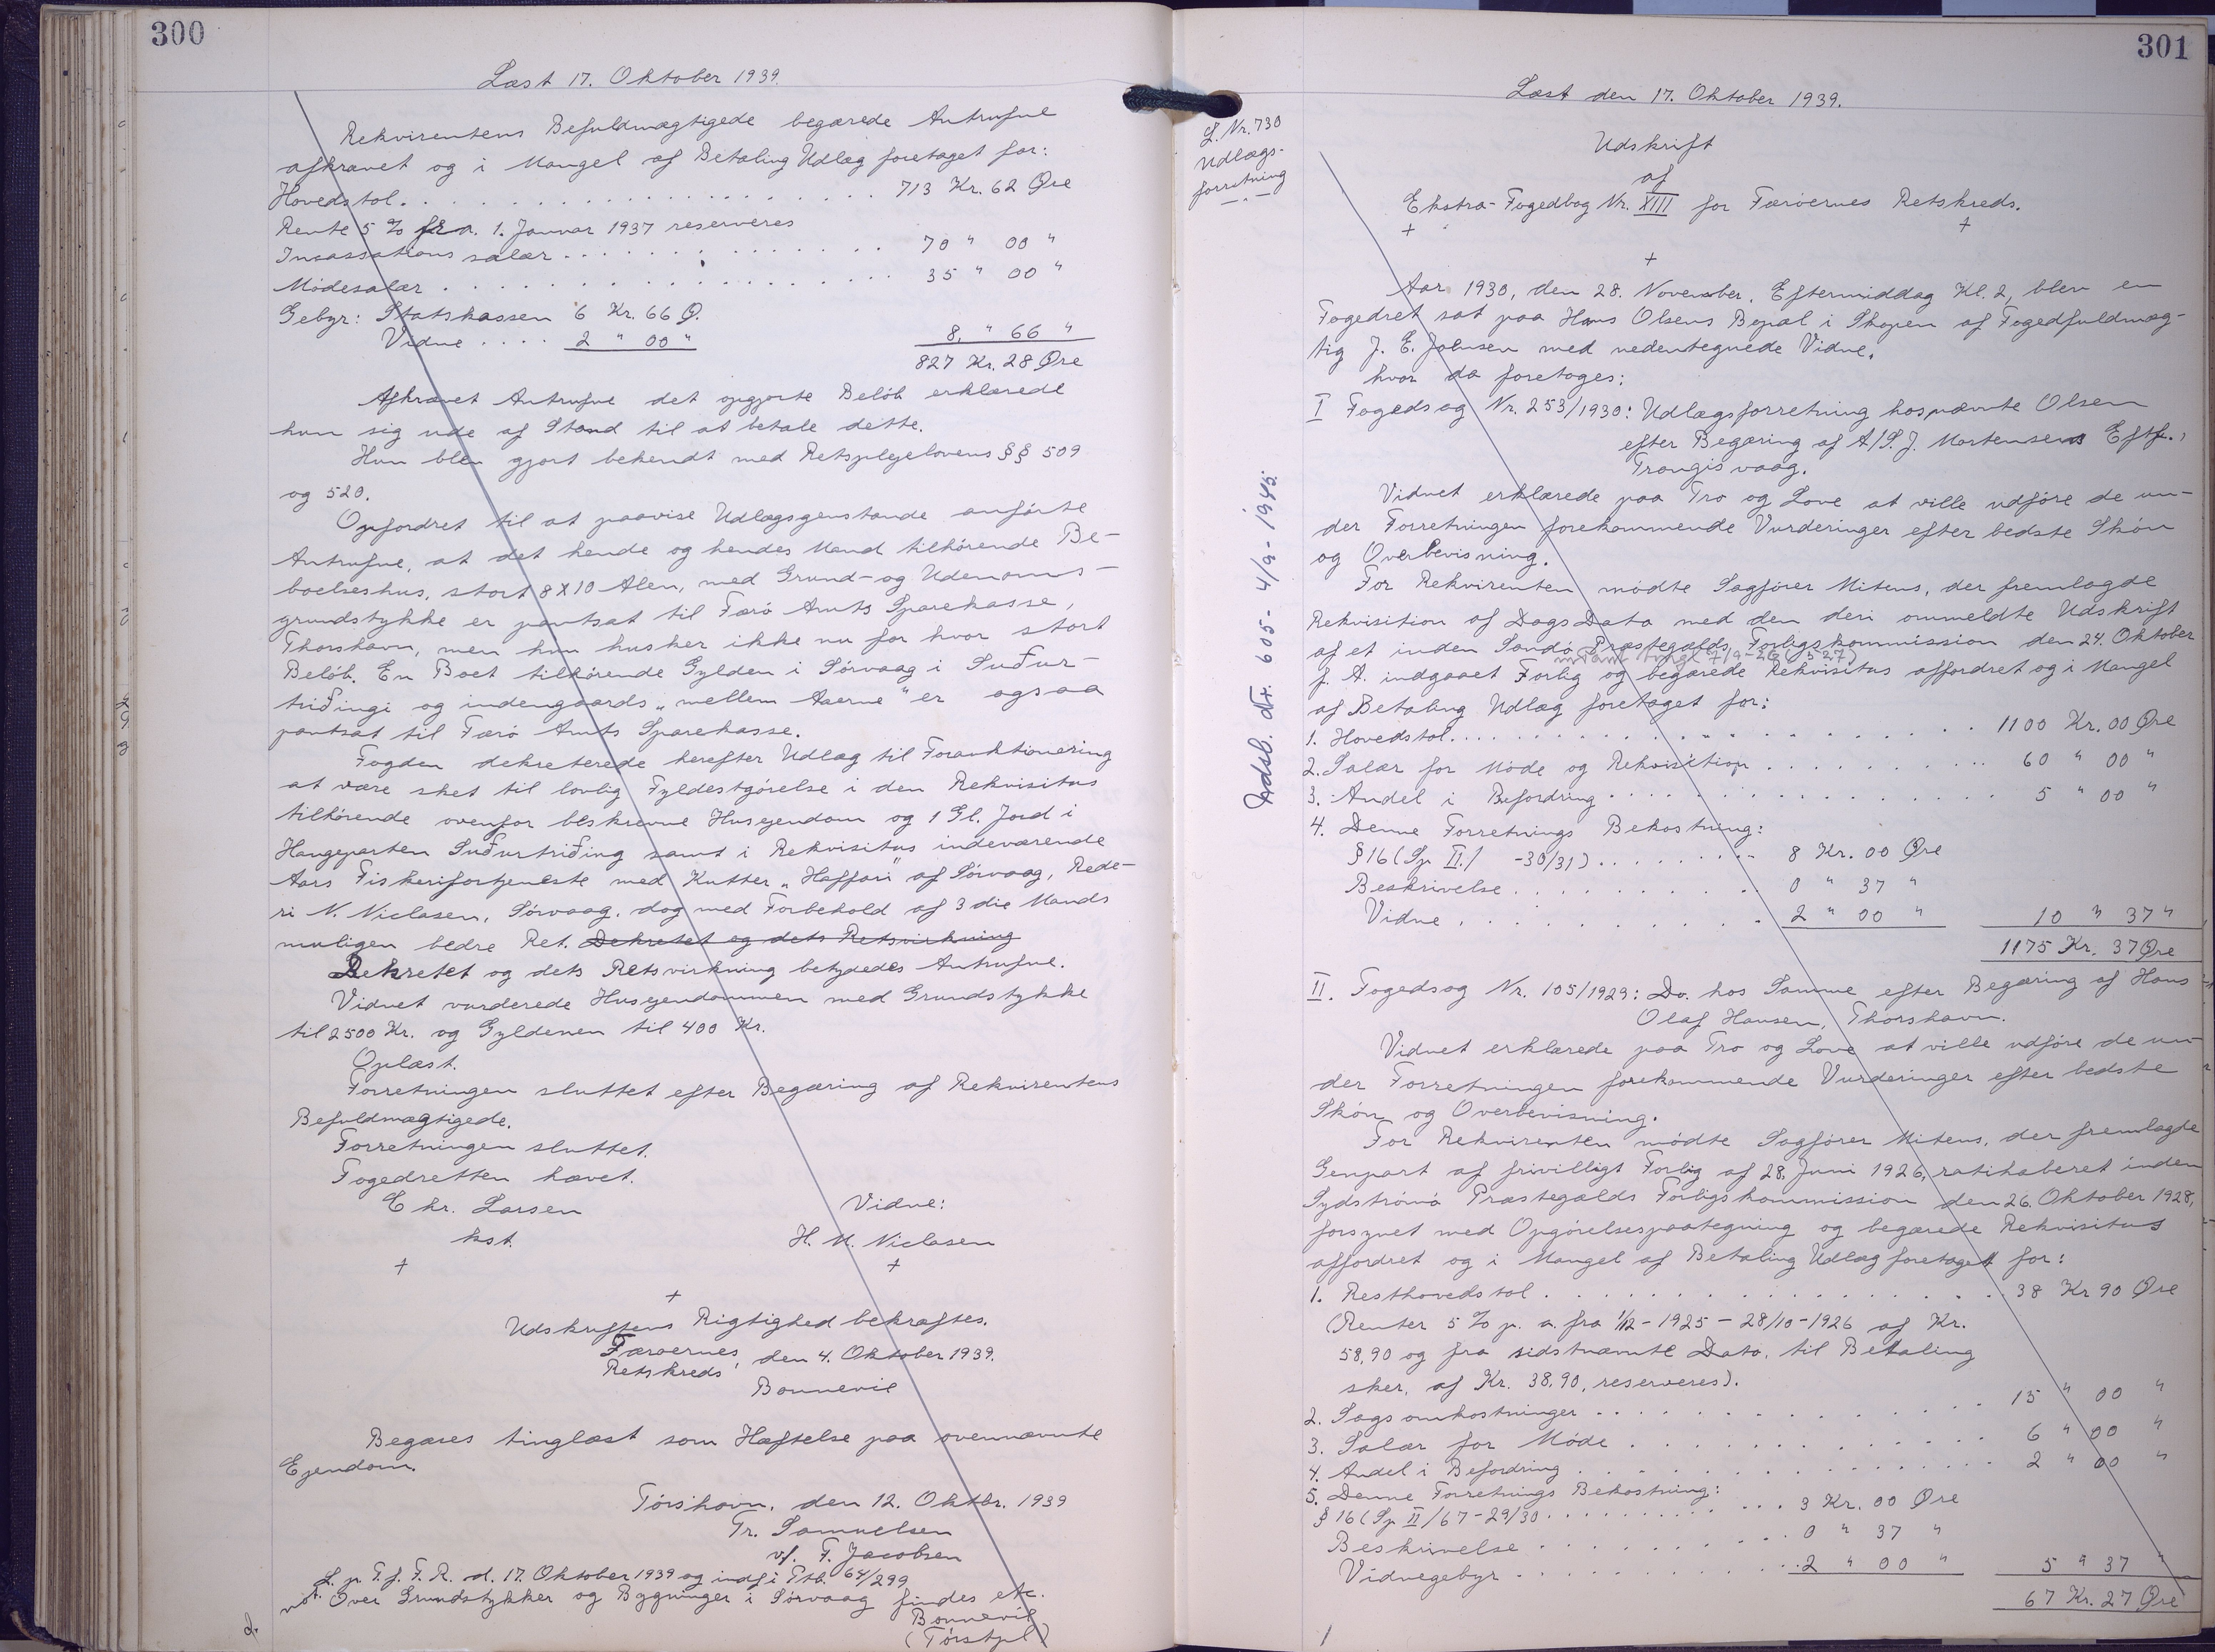 300
Læst 17. Oktober 1939.
Rekvirentens Befuldmægtigede begærede Antrufne
afkrævet og i Mangel af Betaling Udlæg foretaget for:
Hovedstol. . . . . . . . . . . . . . . . . . . . 713 Kr. 62 Øre
Rente 5 % fra. 1. Januar 1937 reserveres
Incassations salær . . . . . . . . . . . . . . 70 " 00 "
Mødesalær . . . . . . . . . . . . . . . . . . 35 " 00 "
Gebyr: Statskassen 6 Kr. 66 Ø.
Vidne . . . . 2 " 00 " 8. " 66 "
827 Kr. 28 Øre
Afkrævet Antrufne det opgjorte Beløb erklærede
hun sig ude af Stand til at betale dette.
Hun blev gjort bekendt med Retsplejelovens §§ 509
og 520.
Opfordret til at paavise Udlægsgenstande anførte
Antrufne, at det hende og hendes Mand tilhørende Be-
boelseshus, stort 8 x 10 Alen, med Grund- og Udenoms-
grundstykke er pantsat til Færø Amts Sparekasse,
Thorshavn, men hun husker ikke nu for hvor stort
Beløb. En Boet tilhørende Gylden i Sørvaag i Suður-
triðingi og indengaards „mellem Aaerne" er ogsaa
pantsat til Færø Amts Sparekasse.
Fogden dekreterede herefter Udlæg til Forauktionering
at være sket til lovlig Fyldestgørelse i den Rekvisitus
tilhørende ovenfor beskrevne Husejendom og 1 Gl. Jord i
Haugeparten Suðurtriðing samt i Rekvisitus indeværende
Aars Fiskerifortjeneste med Kutter „Haffari" af Sørvaag, Rede-
ri N. Niclasen, Sørvaag, dog med Forbehold af 3 die Mands
muligen bedre Ret. Dekretet og dets Retsvirkning
Dekretet og dets Retsvirkning betydedes Antrufne.
Vidnet vurderede Husejendommen med Grundstykke
til 2500 Kr. og Gyldenen til 400 Kr.
Oplæst.
Forretningen sluttet efter Begæring af Rekvirentens
Befuldmægtigede.
Forretningen sluttet.
Fogedretten hævet.
E hr. Larsen Vidne:
kst. H. M. Niclasen
+ +
+
Udskriftens Rigtighed bekræftes.
Færøernes
Retskreds, den 4. Oktober 1939.
Bonnevie
Begæres tinglæst som Hæftelse paa ovennævnte
Ejendom.
Tórshavn, den 12. Oktbr. 1939
Tr. Samuelsen
v/. F. Jacobsen
L. p. T. f. F. R. d. 17. Oktober 1939 og indf i Ptb. 64/299
not. Over Grundstykker og Bygninger i Sørvaag findes etc.
Bonnevie
(Tórstpl)
d.
301
Læst den 17. Oktober 1939.
L. Nr. 730
Udlægs-
forretning
Udskrift
af
Ekstra-Fogedbog Nr. XIII for Færøernes Retskreds.
+ +
+
Aar 1930, den 28. November, Eftermiddag Kl. 2, blev en
Fogedret sat paa Hans Olsens Bopæl i Skopen af Fogedfuldmæg-
tig J. E. Johnsen med nedentegnede Vidne,
hvor da foretoges:
I Fogedsag Nr. 253/1930: Udlægsforretning hos nævnte Olsen
efter Begæring af A/S. J. Mortensens Eftf.,
Trangisvaag.
Vidnet erklærede paa Tro og Love at ville udføre de un-
der Forretningen forekommende Vurderinger efter bedste Skøn
og Overbevisning.
For Rekvirenten mødte Sagfører Mitens, der fremlagde
Rekvisition af Dags Dato med den deri ommeldte Udskrift
af et inden Sandø Præstegælds Forligskommission den 24. Oktober
f. A. indgaaet Forlig og begærede Rekvisitus affordret og i Mangel
af Betaling Udlæg foretaget for:
1. Hovedstol. . . . . . . . . . . . . . . . . . . 1100 Kr. 00 Øre
2. Salær for Møde og Rekvisition . . . . . . . . . . 60 " 00 "
3. Andel i Befordring . . . . . . . . . . . . . . . 5 " 00 "
4. Denne Forretnings Bekostning:
§ 16 (Sp II./ -30/31) . . . . . . . . 8 Kr. 00 Øre
Beskrivelse . . . . . . . . . . . 0 " 37 "
Vidne . . . . . . . . . . . . . 2 " 00 " 10 " 37 "
1175 Kr. 37 Øre
II. Fogedsag Nr. 105/1929: Do. hos Samme efter Begæring af Hans
Olaf Hansen, Thorshavn.
Vidnet erklærede paa Tro og Love at ville udføre de un-
der Forretningen forekommende Vurderinger efter bedste
Skøn og Overbevisning.
For Rekvirenten mødte Sagfører Mitens, der fremlagde
Genpart af frivilligt Forlig af 28. Juni 1926, ratihaberet inden
Sydstrømø Præstegælds Forligskommission den 26. Oktober 1928,
forsynet med Opgørelsespaategning og begærede Rekvisitus
affordret og i Mangel af Betaling Udlæg foretaget for:
1. Resthovedstol . . . . . . . . . . . . . . . . . 38 Kr 90 Øre
(Renter 5 % p. a. fra 1/12 - 1925 - 28/10 - 1926 af Kr.
58,90 og fra sidstnævnte Dato, til Betaling
sker, af Kr. 38,90, reserveres).
2. Sagsomkostninger . . . . . . . . . . . . . . . 15 " 00 "
3. Salær for Møde . . . . . . . . . . . . . . . 6 " 00 "
4. Andel i Befordring . . . . . . . . . . . . . . 2 " 00 "
5. Denne Forretnings Bekostning:
§ 16 (Sp II/67 - 29/30 . . . . . . . . . . 3 Kr. 00 Øre
Beskrivelse . . . . . . . . . . . 0 " 37 "
Vidnegebyr . . . . . . . . . . . . 2 " 00 " 5 " 37 "
67 Kr. 27 Øre
Udsb. Nr. 605 - 4/9 - 1945.